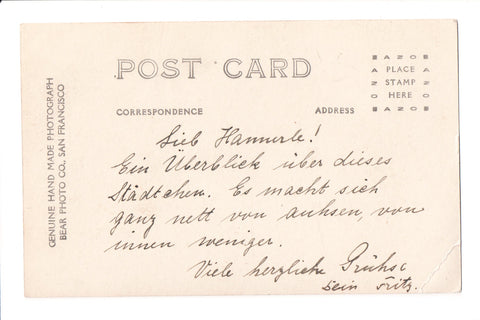 POST CARD
CORRESPONDENCE
ADDRESS
AZO
PLACE
STAMP
HERE
AZO
GENUINE HAND MADE PHOTOGRAPH
BEAR PHOTO CO., SAN FRANCISCO
Lieb Hannerle!
Ein Überblick über dieses
Städtchen. Es macht sich
ganz nett von auhsen, von
innen weniger.
Viele herzliche Grühse
Dein Fritz.